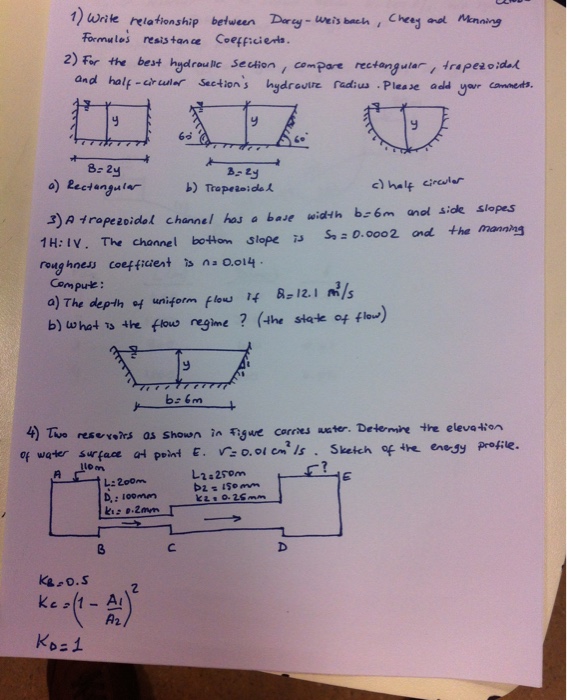 1) Write relationship between Darcy-Weisbach, Chezy and Manning
Formula's resistance Coefficients.
2) For the best hydraulic Section, compare rectangular, trapezoidal
and half-circular Section's hydraulic radius. Please add your comments.
y
y
y
60°
60°
B=2y
B=2y
a) Rectangular
b) Trapezoidal
c) half circular
3) A trapezoidal channel has a base width b=6m and side slopes
1H:1V. The channel bottom slope is S₀=0.0002 and the manning
roughness coefficient is n=0.014.
Compute:
a) The depth of uniform flow if Q=12.1 m³/s
b) What is the flow regime? (the state of flow)
y
1
1
b=6m
4) Two reservoirs as shown in Figure carries water. Determine the elevation
of water surface at point E. ν=0.01 cm²/s. Sketch of the energy profile.
A
110m
L=200m
D₁=100mm
k₁=0.2mm
L2=250m
D2=150mm
k2=0.25mm
?
E
B
C
D
KB=0.5
Kc=(1-A1/A2)²
KD=1